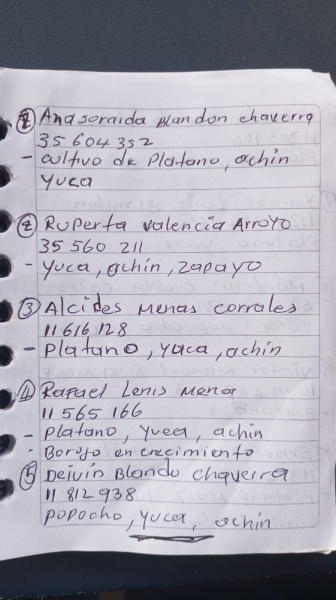 ① Anasoraida Blandon chaverra
35 604 352
- cultivo de Platano, achin
yuca
② Ruperta valencia Arroyo
35 560 211
- yuca, achin, zapayo
③ Alcides Menas corrales
11 616 128
- Platano, yuca, achin
④ Rafael Lenis Mena
11 565 166
- Platano, yuca, achin
- Borojo en crecimiento
⑤ Deivin Blando chaverra
11 812 938
popocho, yuca, achin